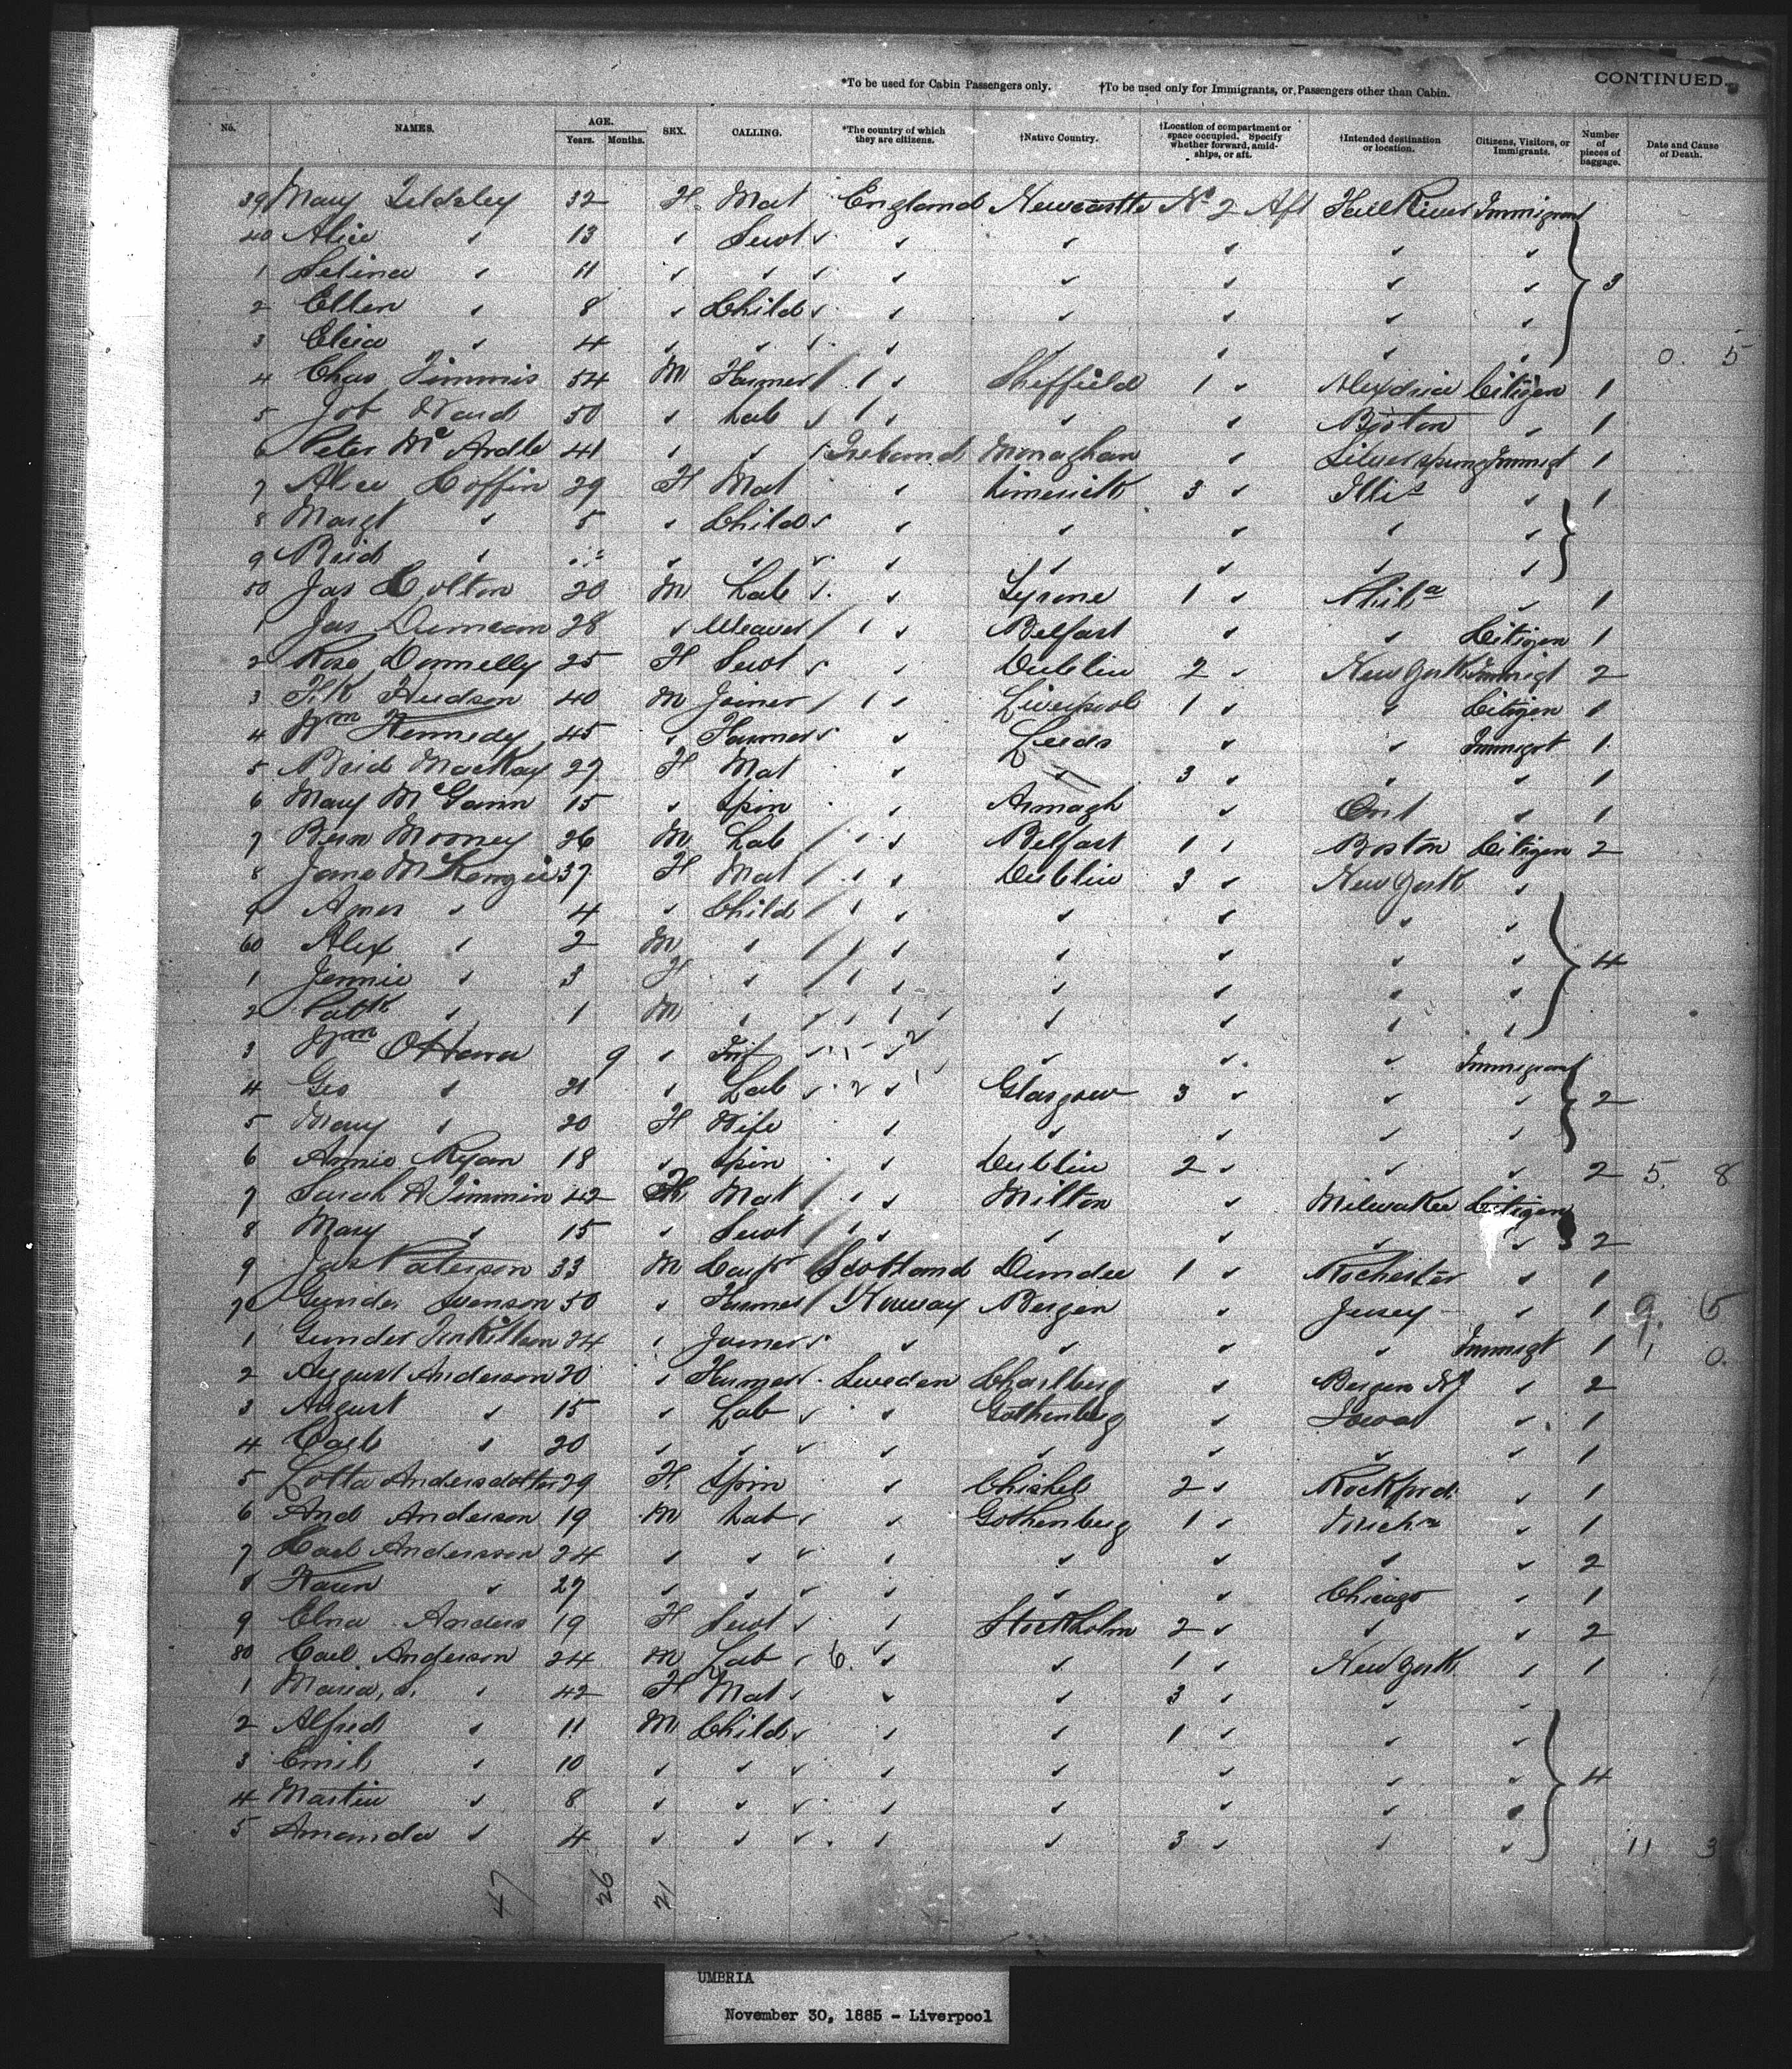 CONTINUED.
*To be used for Cabin Passengers only. †To be used only for Immigrants, or Passengers other than Cabin.
No. NAMES. AGE. Years. Months. SEX. CALLING. *The country of which they are citizens. †Native Country. †Location of compartment or space occupied. Specify whether forward, amidships, or aft. †Intended destination or location. Citizens, Visitors, or Immigrants. Number of pieces of baggage. Date and Cause of Death.
39 Mary Tildsley 32 F. Mat England Newcastle No 2 Aft Fall River Immigrant
40 Alice " 13 " Servt " " " " " "
1 Selina " 11 " " " " " " " " 3
2 Ellen " 8 " Child " " " " " "
3 " 4 " " " " " " " " 0. 5
4 Chas Timmis 54 M Farmer / 1 " Sheffield 1 " Citizen 1
5 Job Ward 50 " Lab " 1 " " " Boston " 1
6 Peter McArdle 41 " " " Ireland Monaghan " Immigt 1
7 Alice Coffin 29 F Mat " Limerick 3 " Ills " 1
8 Margt " 5 " Child " " " " " "
9 Brid " " " " " " " " "
50 Jas Colton 20 M Lab " " Tyrone 1 " Phila " 1
1 Jas Duncan 28 " Weaver / 1 " Belfast " " Citizen 1
2 Rose Donnelly 25 F Servt " " Dublin 2 " New York Immigt 2
3 T.K Hudson 40 M Joiner / 1 " Liverpool 1 " " Citizen 1
4 Wm Kennedy 45 " Farmer " " Leeds " " Immigt 1
5 Brid MacKay 27 F Mat " " 3 " " " 1
6 Mary McGann 15 " Spin " Armagh " Ont " 1
7 Bern Mooney 26 M Lab / 1 " Belfast 1 " Boston Citizen 2
8 Jane McKenzie 37 F Mat / 1 " Dublin 3 " New York "
9 " 4 " Child / 1 " " " " "
60 Alex " 2 M " / 1 " " " " " 4
1 Jennie " 3 F " / 1 " " " " "
2 Patk " 1 M " " " " " " " "
3 Wm O'Hara 9 " Inf " " " " " Immigrant
4 Geo " 21 " Lab " 2 " Glasgow 3 " " " 2
5 Mary " 20 F Wife " " " " "
6 Annie Ryan 18 " Spin " Dublin 2 " " " 2 5. 8
7 Sarah A Timmin 42 F Mat / 1 " Milton " Milwakee Citizen
8 Mary " 15 " Servt / 1 " " " " " 2
9 Jas Paterson 33 M Carp / Scotland Dundee 1 " Rochester " 1
70 Gunder Svenson 50 " Farmer / Norway Bergen " Jersey " 1 9. 5
1 Gunder 24 " Joiner " " " " " Immigt 1 1 0.
2 August Anderson 20 " Farmer " Sweden Charlberg " Bergen NJ " 2
3 August " 15 " Lab " " Gothenberg " Iowa " 1
4 Carl " 20 " " " " " " " " 1
5 Lotta Andersdotter 29 F. Spin " 2 " Rockford " 1
6 And Anderson 19 M Lab " " Gothenberg 1 " " 1
7 Carl Andersson 24 " " " " " " " " 2
8 " 27 " " " " " " Chicago " 1
9 Elna Anders 19 F Servt " " Stockholm 2 " " " 2
80 Carl Anderson 24 M Lab " 6. " " 1 " New York " 1
1 Maria, S. " 42 F Mat " " " 3 " " "
2 Alfred " 11 M Child " " " 1 " " "
3 Emil " 10 " " " " " " " " 4
4 Martin " 8 " " " " " " " "
5 Amanda " 4 " " " " " 3 " " " 11 3
47 26 21
UMBRIA
November 30, 1885 - Liverpool